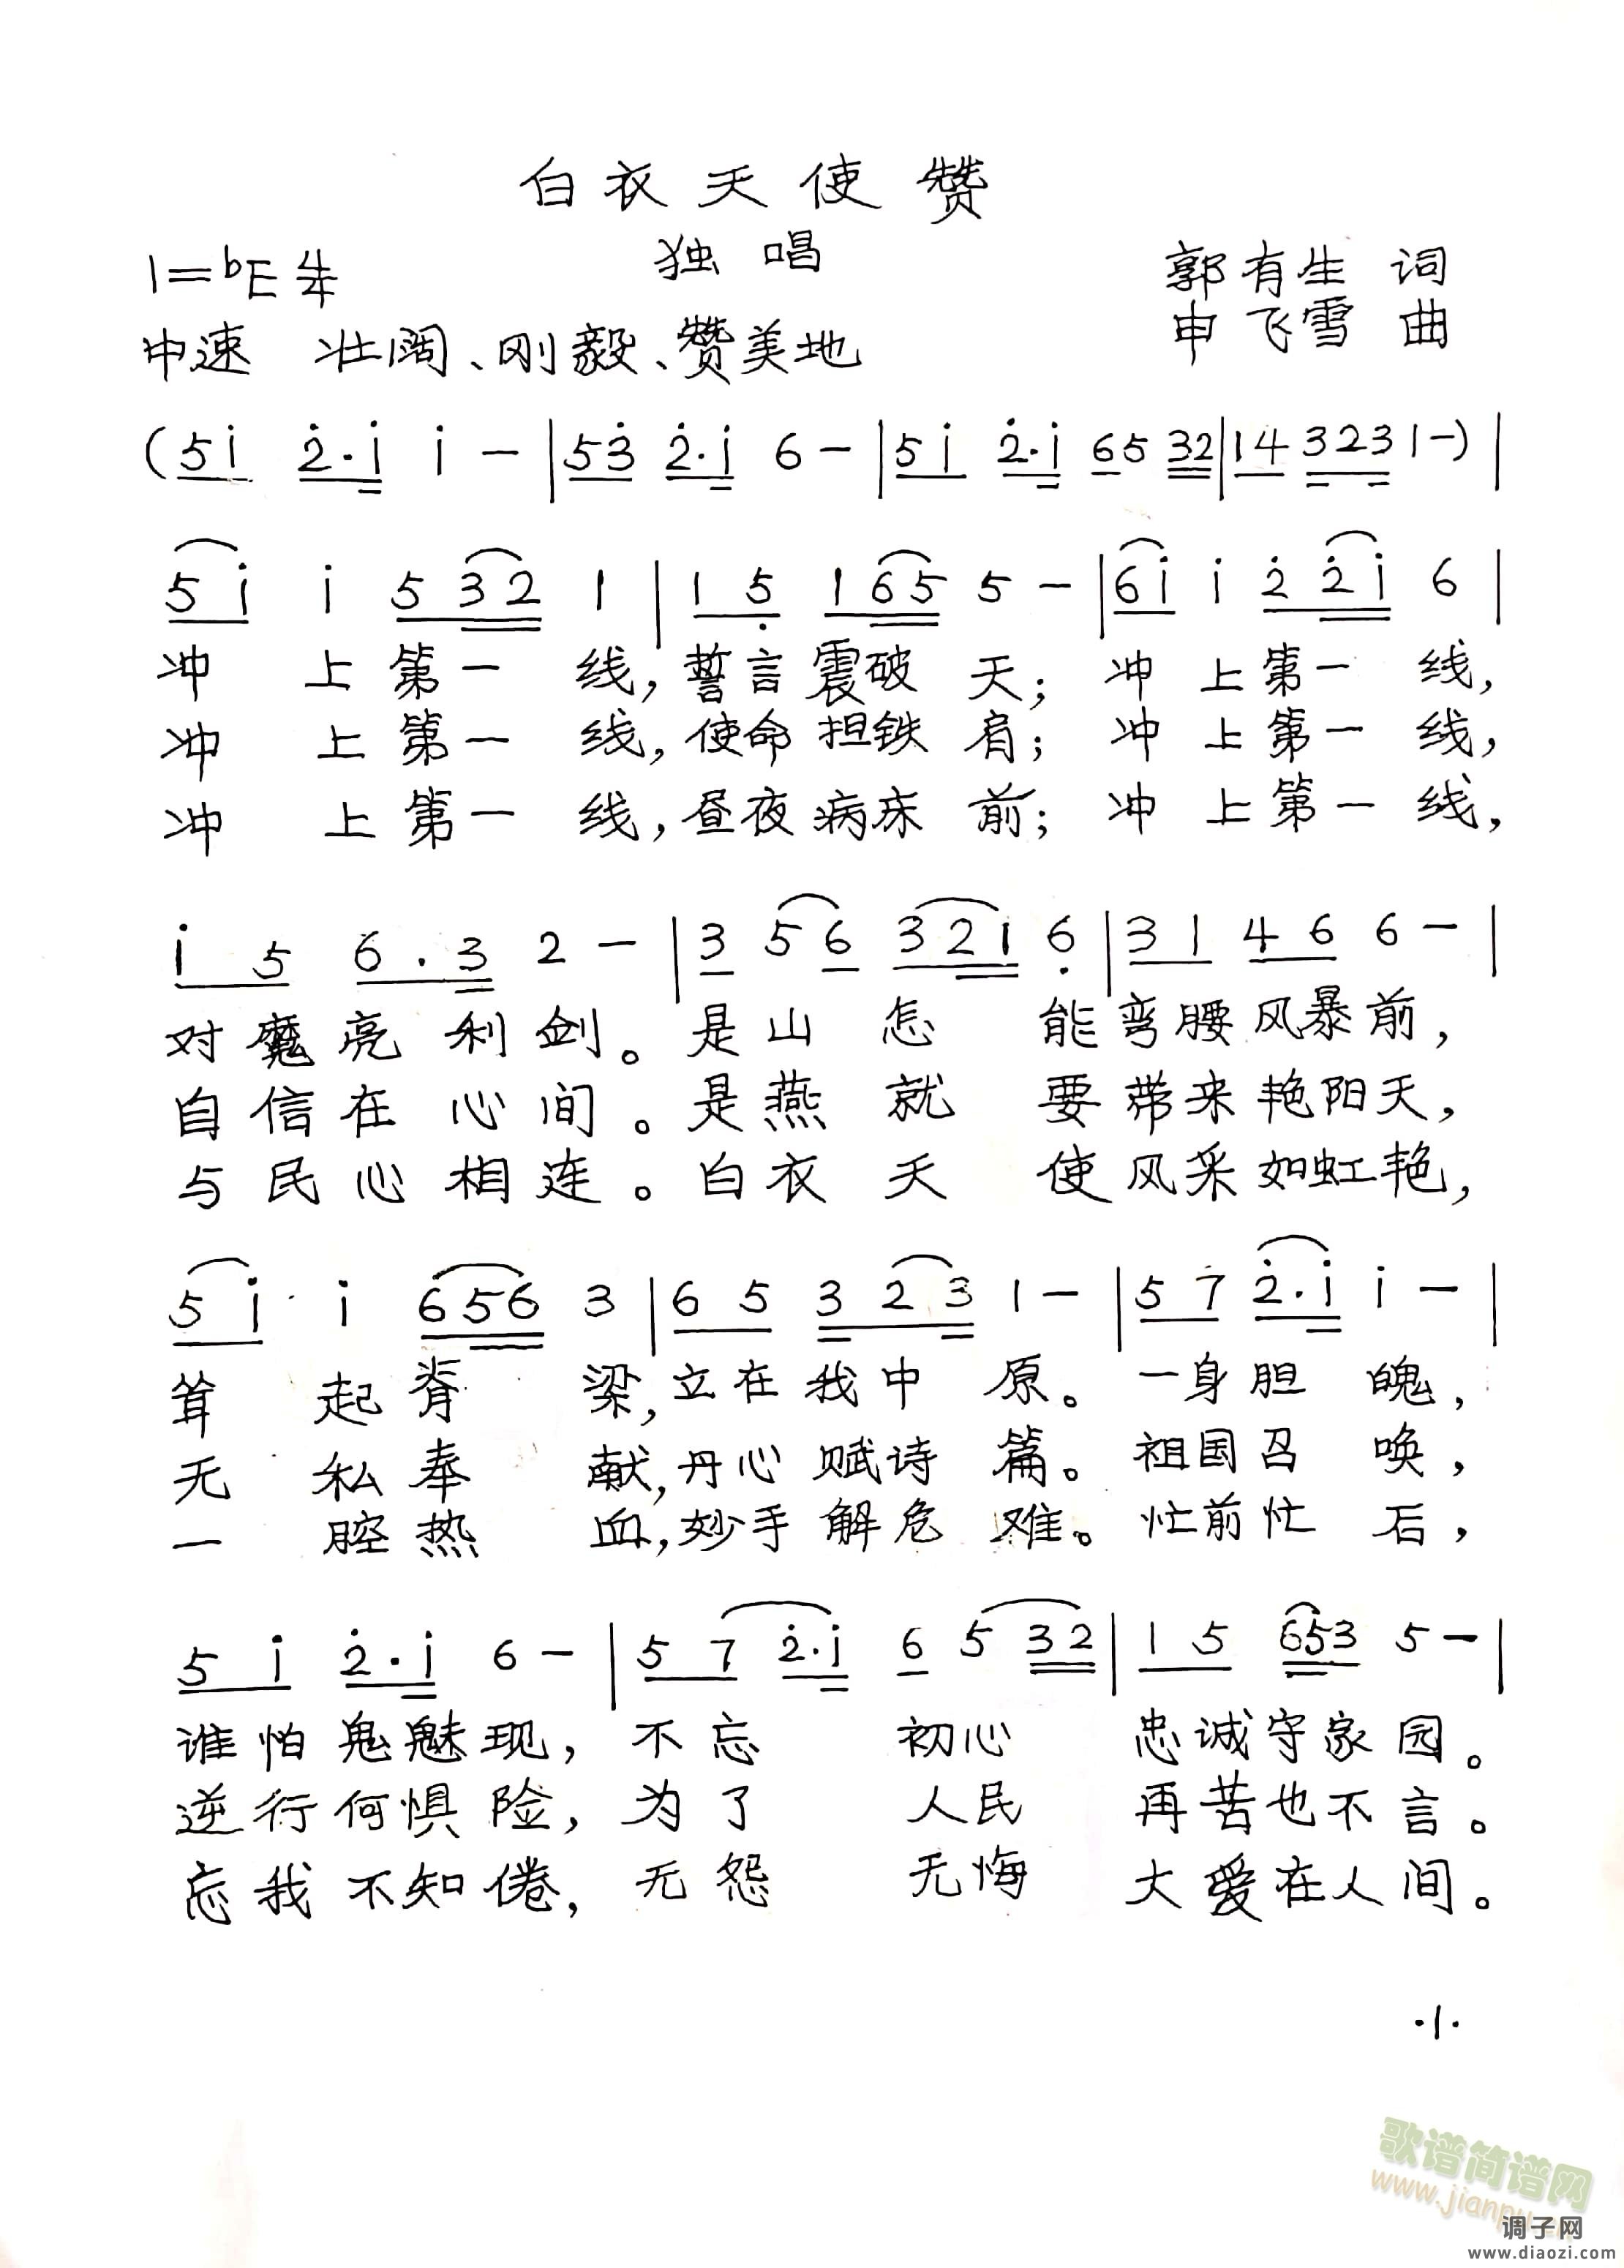 白衣天使赞
独唱
1=bE 4/4
郭有生 词
中速 壮阔、刚毅、赞美地
申飞雪 曲
(5i 2·i i - | 53 2·i 6 - | 5i 2·i 65 32 | 14 323 1 -) |
5i i 532 1 | 15 165 5 - | 6i i 22i 6 |
冲上第一线,誓言震破天;冲上第一线,
冲上第一线,使命担铁肩;冲上第一线,
冲上第一线,昼夜病床前;冲上第一线,
i5 6·3 2 - | 3 56 321 6 | 31 46 6 - |
对魔亮利剑。是山怎能弯腰风暴前,
自信在心间。是燕就要带来艳阳天,
与民心相连。白衣天使风采如虹艳,
5i i 656 3 | 65 323 1 - | 57 2·i i - |
耸起脊梁,立在我中原。一身胆魄,
无私奉献,丹心赋诗篇。祖国召唤,
一腔热血,妙手解危难。忙前忙后,
5i 2·i 6 - | 57 2·i 6 532 | 15 653 5 - |
谁怕鬼魅现,不忘初心忠诚守家园。
逆行何惧险,为了人民再苦也不言。
忘我不知倦,无怨无悔大爱在人间。
·1·
歌谱简谱网
www.jianpu.cn
调子网
www.diaozi.com